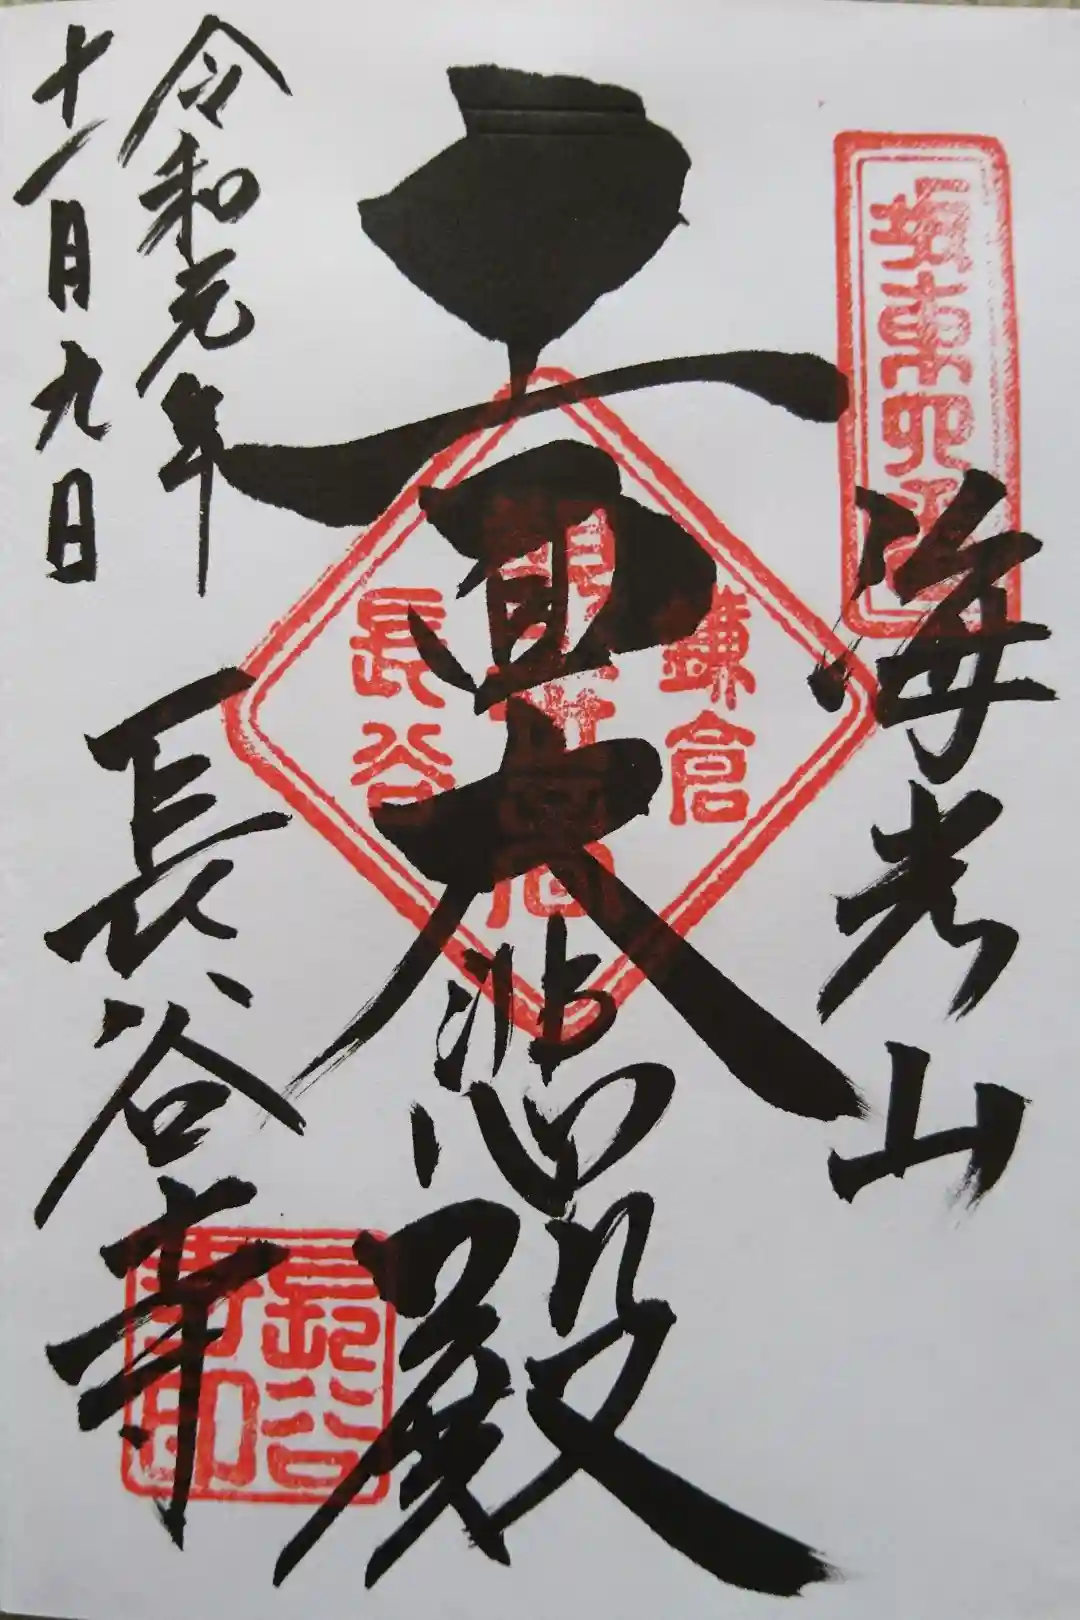 坂東四
海光山
十一面大悲殿
鎌倉
長谷
令和元年
十一月九日
長谷寺
長谷
寺印